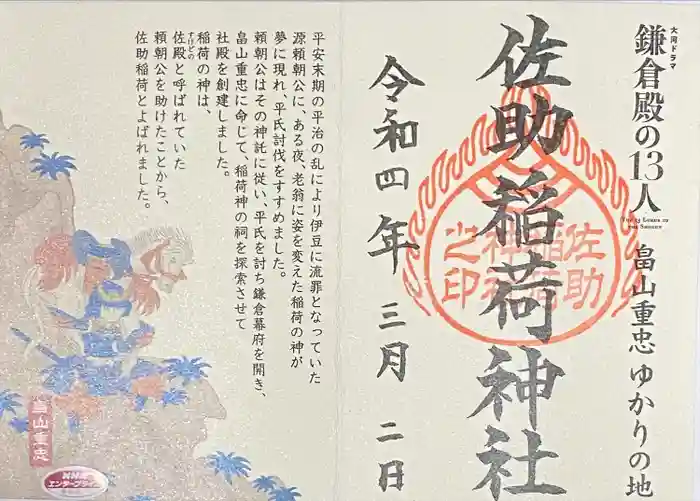 大河ドラマ
鎌倉殿の13人
THE 13 LORDS OF
THE SHOGUN
畠山重忠 ゆかりの地
佐助稲荷神社
佐助
稲荷
神社
之印
令和四年 三月 二日
平安末期の平治の乱により伊豆に流罪となっていた
源頼朝公に、ある夜、老翁に姿を変えた稲荷の神が
夢に現れ、平氏討伐をすすめました。
頼朝公はその神託に従い、平氏を討ち鎌倉幕府を開き、
畠山重忠に命じて、稲荷神の祠を探索させて
社殿を創建しました。
稲荷の神は、
佐殿と呼ばれていた
すけどの
頼朝公を助けたことから、
佐助稲荷とよばれました。
畠山重忠
NHK
エンタープライズ